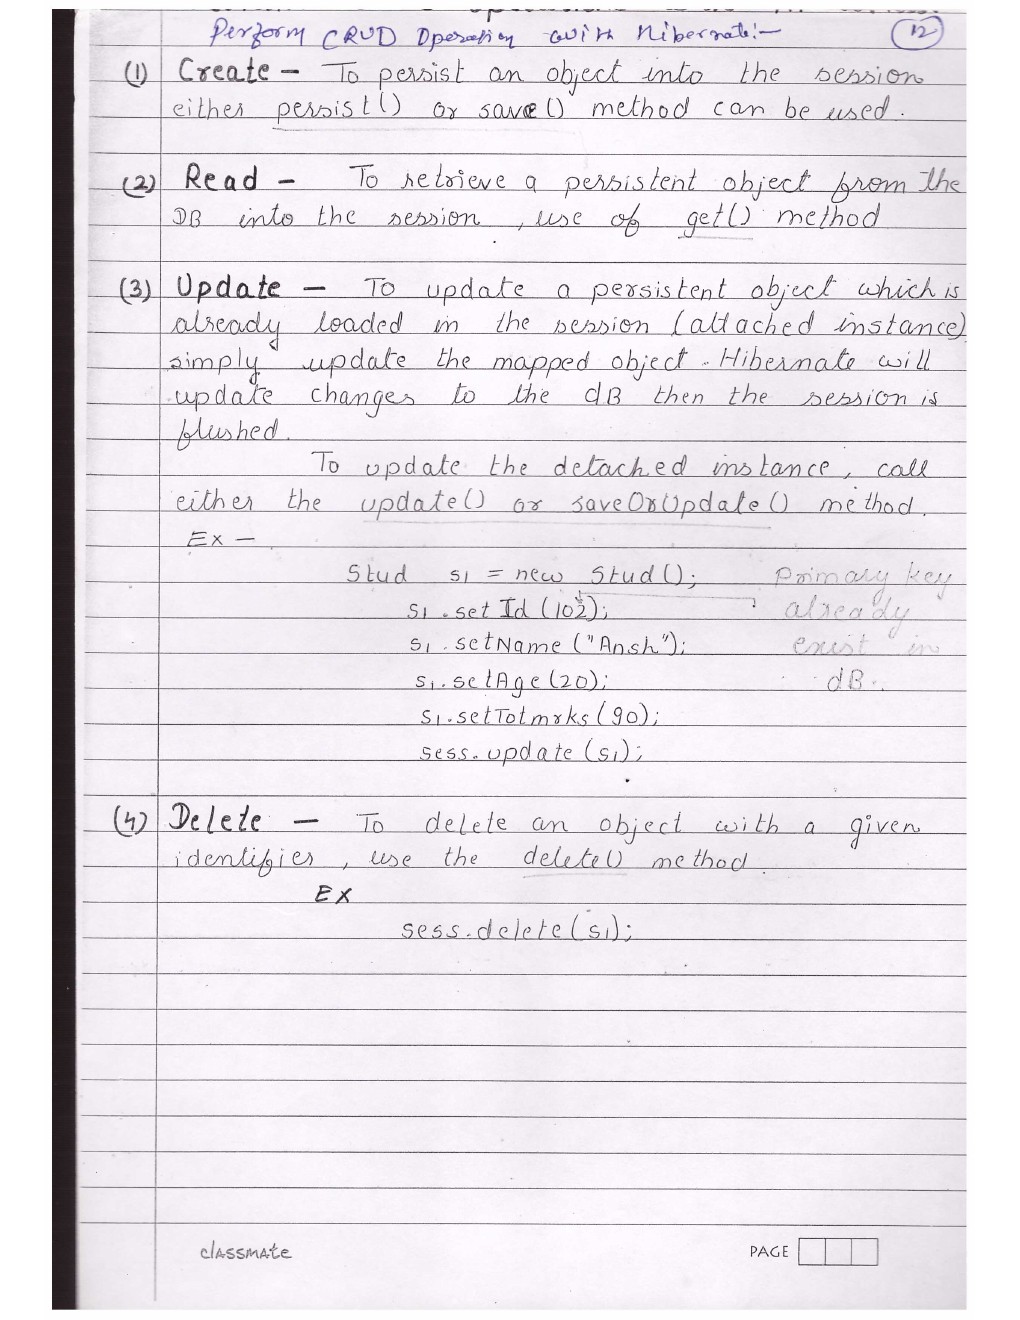 Perform CRUD Operation with Hibernate:- 12
(1) Create - To persist an object into the session
either persist() or save() method can be used.
(2) Read - To retrieve a persistent object from the
DB into the session, use of get() method
(3) Update - To update a persistent object which is
already loaded in the session (attached instance)
simply update the mapped object. Hibernate will
update changes to the dB then the session is
flushed.
To update the detached instance, call
either the update() or saveOrUpdate() method.
Ex -
Stud s1 = new Stud(); Primary key
s1.setId(102); already
s1.setName("Ansh"); exist in
s1.setAge(20); dB.
s1.setTotmrks(90);
sess.update(s1);
(4) Delete - To delete an object with a given
identifier, use the delete() method.
EX
sess.delete(s1);
classmate PAGE